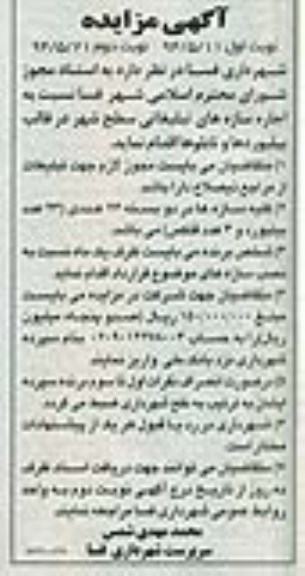 آگهی مزایده
نوبت اول ۹۶/۵/۱۱ نوبت دوم ۹۶/۵/۲۱
شهرداری فسا در نظر دارد به استناد مجوز
شورای محترم اسلامی شهر فسا نسبت به
اجاره سازه های تبلیغاتی سطح شهر در قالب
بیلبوردها و تابلوها اقدام نماید.
۱) متقاضیان می بایست مجوز لازم جهت تبلیغات
از مراجع ذیصلاح دارا باشند.
۲) کلیه سازه ها در دو بسته عددی عدد
بیلبورد و ۳ عدد می باشد.
۳) شخص برنده می بایست ظرف یک ماه نسبت به
نصب سازه های موضوع قرارداد اقدام نماید.
۴) متقاضیان جهت شرکت در مزایده می بایست
مبلغ ۱۵۰/۰۰۰/۰۰۰ ریال (صد و پنجاه میلیون
ریال) را به حساب بنام سپرده
شهرداری نزد بانک ملی واریز نمایند.
۵) در صورت انصراف نفرات اول تا سوم برنده سپرده
ایشان به ترتیب به نفع شهرداری ضبط می گردد.
۶) شهرداری در رد یا قبول هر یک از پیشنهادات
مختار است.
۷) متقاضیان می توانند جهت دریافت اسناد ظرف
ده روز از تاریخ درج آگهی نوبت دوم به واحد
روابط عمومی شهرداری فسا مراجعه نمایند.
محمد مهدی شمس
سرپرست شهرداری فسا